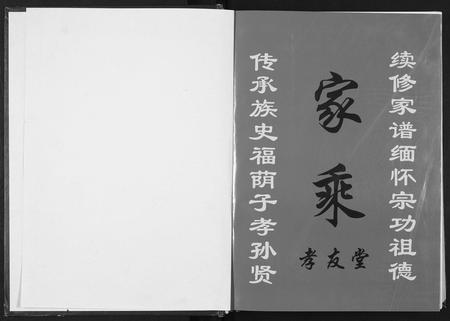 续修家谱缅怀宗功祖德
家乘
孝友堂
传承族史福荫子孝孙贤